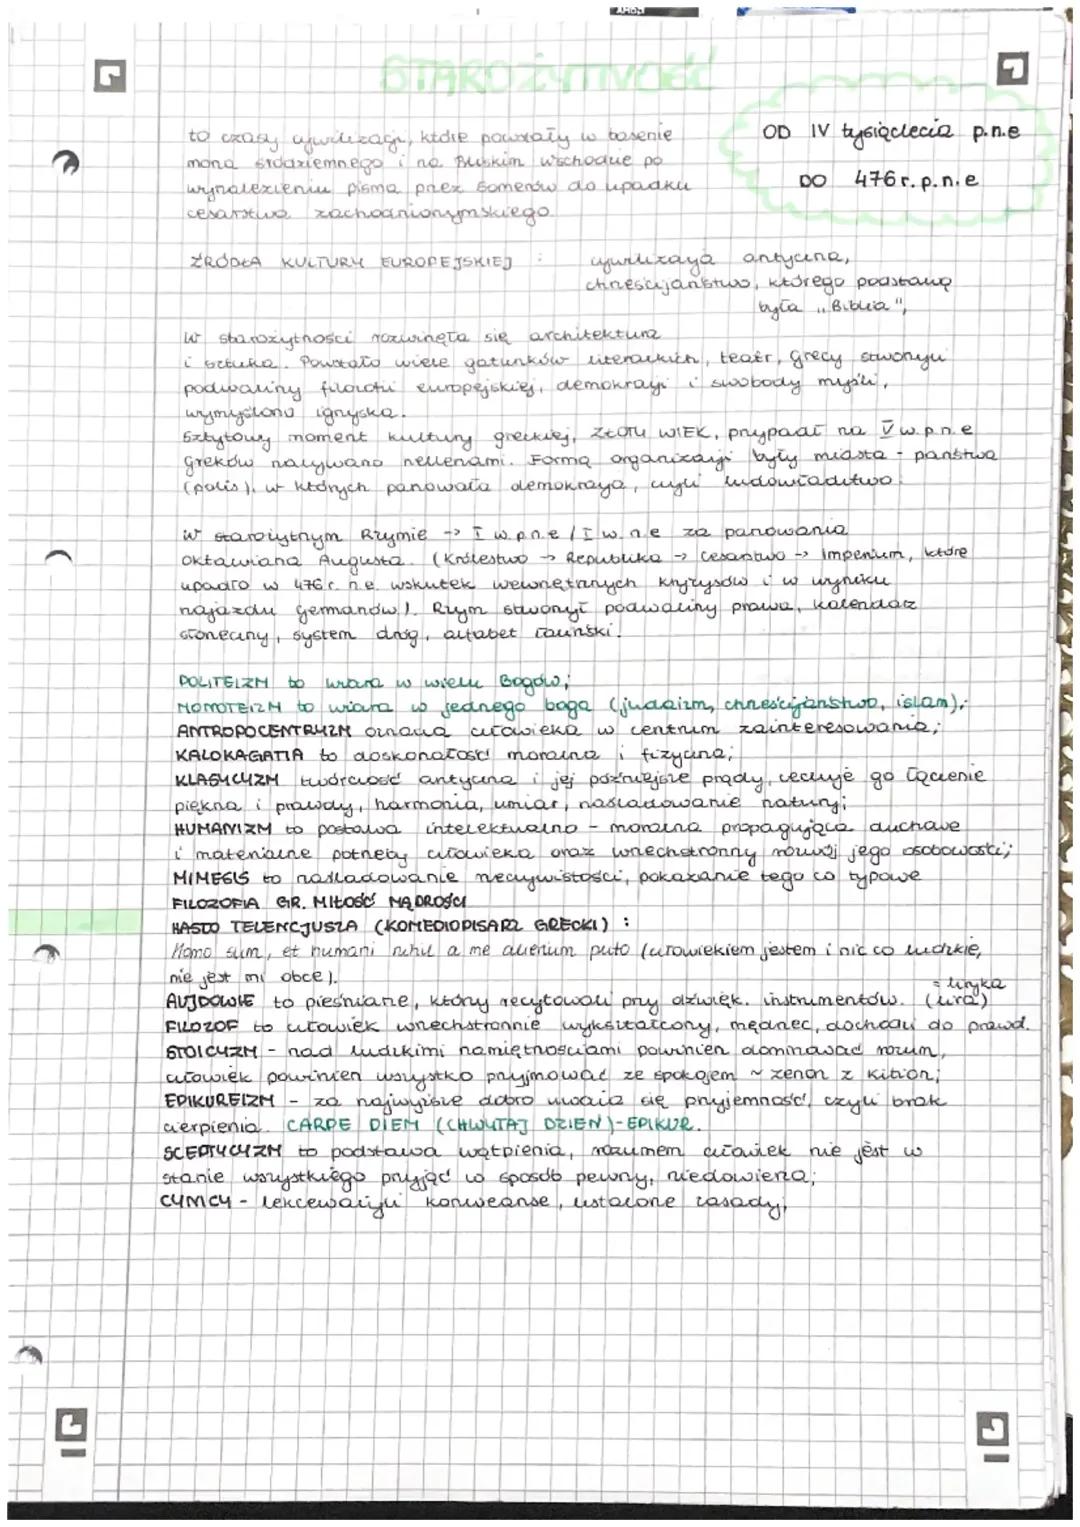 STAROŻYTNOŚĆ
OD IV tysiąclecia p.n.e
DO 476 r. p. n. e
to czasy cywilizacji, które powstały w basenie
morza śródziemnego i na Bliskim Wschodzie po
wynalezieniu pisma przez Sumerów do upadku
cesarstwa zachodniorzymskiego.
ŹRÓDŁA KULTURY EUROPEJSKIEJ : cywilizacja antyczna,
chrześcijaństwo, którego podstawą
była „Biblia",
W starożytności rozwinęła się architektura
i sztuka. Powstało wiele gatunków literackich, teatr, Grecy stworzyli
podwaliny filozofii europejskiej, demokracji i swobody myśli,
wymyślono igrzyska.
Sztytowy moment kultury greckiej, ZŁOTY WIEK, przypadł na V w. p. n. e
Greków nazywano hellenami. Formą organizacji były miasta - państwa
(polis), w których panowała demokracja, czyli ludowładztwo.
W starożytnym Rzymie -> I w. p. n. e / I w. n. e za panowania
Oktawiana Augusta. (Królestwo -> Republika -> Cesarstwo -> Imperium, które
upadło w 476 r. n. e. wskutek wewnętrznych kryzysów i w wyniku
najazdu Germanów). Rzym stworzył podwaliny prawa, kalendarz
słoneczny, system dróg, alfabet łaciński.
POLITEIZM to wiara w wielu Bogów;
MONOTEIZM to wiara w jednego boga (judaizm, chrześcijaństwo, islam);
ANTROPOCENTRYZM oznacza człowieka w centrum zainteresowania;
KALOKAGATIA to doskonałość moralna i fizyczna;
KLASYCYZM twórczość antyczna i jej późniejsze prądy, cechuje go łączenie
piękna i prawdy, harmonia, umiar, naśladowanie natury;
HUMANIZM to postawa intelektualno - moralna propagująca duchowe
i materialne potrzeby człowieka oraz wszechstronny rozwój jego osobowości;
MIMESIS to naśladowanie rzeczywistości, pokazanie tego co typowe
FILOZOFIA GR. MIŁOŚĆ MĄDROŚCI
HASŁO TELENCJUSZA (KOMEDIOPISARZ GRECKI) :
Homo sum, et humani nihil a me alienum puto (człowiekiem jestem i nic co ludzkie,
nie jest mi obce).
= liryka
AOJDOWIE to pieśniarze, który recytowali przy dźwięk. instrumentów. (lira)
FILOZOF to człowiek wszechstronnie wykształcony, mędrzec, dochodzi do prawd.
STOICYZM - nad ludzkimi namiętnościami powinien dominować rozum,
człowiek powinien wszystko przyjmować ze spokojem ~ zenon z kition;
EPIKUREIZM - za najwyższe dobro uważa się przyjemność, czyli brak
cierpienia. CARPE DIEM (CHWYTAJ DZIEŃ) - EPIKUR.
SCEPTYCYZM to podstawa wątpienia, rozumem człowiek nie jest w
stanie wszystkiego przyjąć w sposób pewny, niedowierza;
CYNICY - lekceważyli konweanse, ustalone zasady,